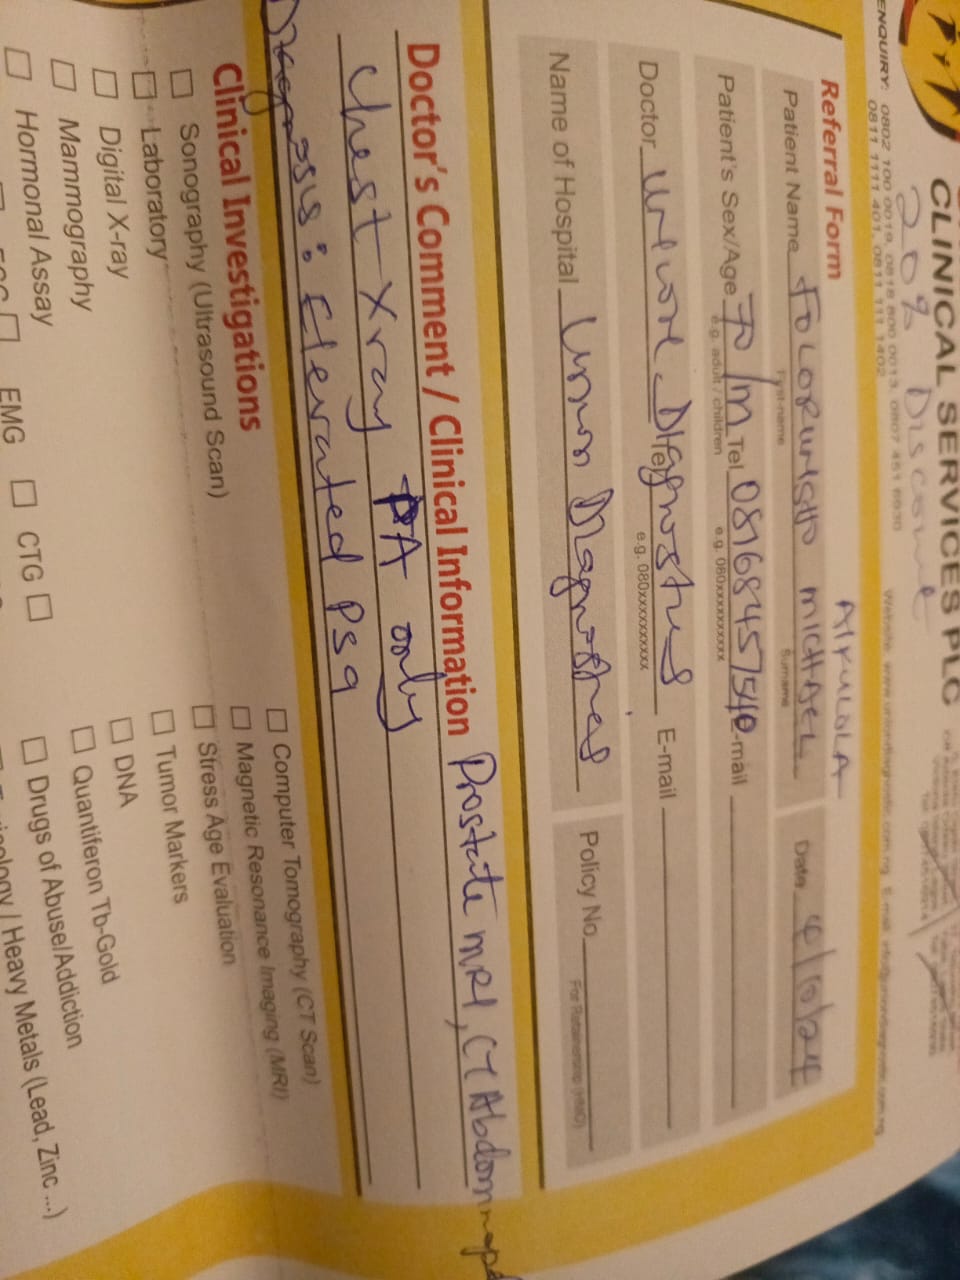 CLINICAL SERVICES PLC
20% Discount
ENQUIRY: 0802 100 0019, 0818 800 0013, 0807 451 6930
0811 1111 401, 0811 111 1402
Referral Form
AIKULOLA
Patient Name FOLORUNSHO MICHAEL Date 4/10/24
First-name Surname
Patient's Sex/Age 70/M Tel 08168457540 E-mail
e.g. adult / children e.g. 080xxxxxxxxxx
Doctor Diagnostics Tel E-mail
e.g. 080xxxxxxxxxx
Name of Hospital Union Diagnostics Policy No
For Retainership (HMO)
Doctor's Comment / Clinical Information Prostate MRI, CT Abdomen
Chest Xray PA only
Diagnosis: Elevated PSA
Clinical Investigations
Sonography (Ultrasound Scan)
Laboratory
Digital X-ray
Mammography
Hormonal Assay
EMG CTG
Computer Tomography (CT Scan)
Magnetic Resonance Imaging (MRI)
Stress Age Evaluation
Tumor Markers
DNA
Quantiferon Tb-Gold
Drugs of Abuse/Addiction
/ Heavy Metals (Lead, Zinc ...)